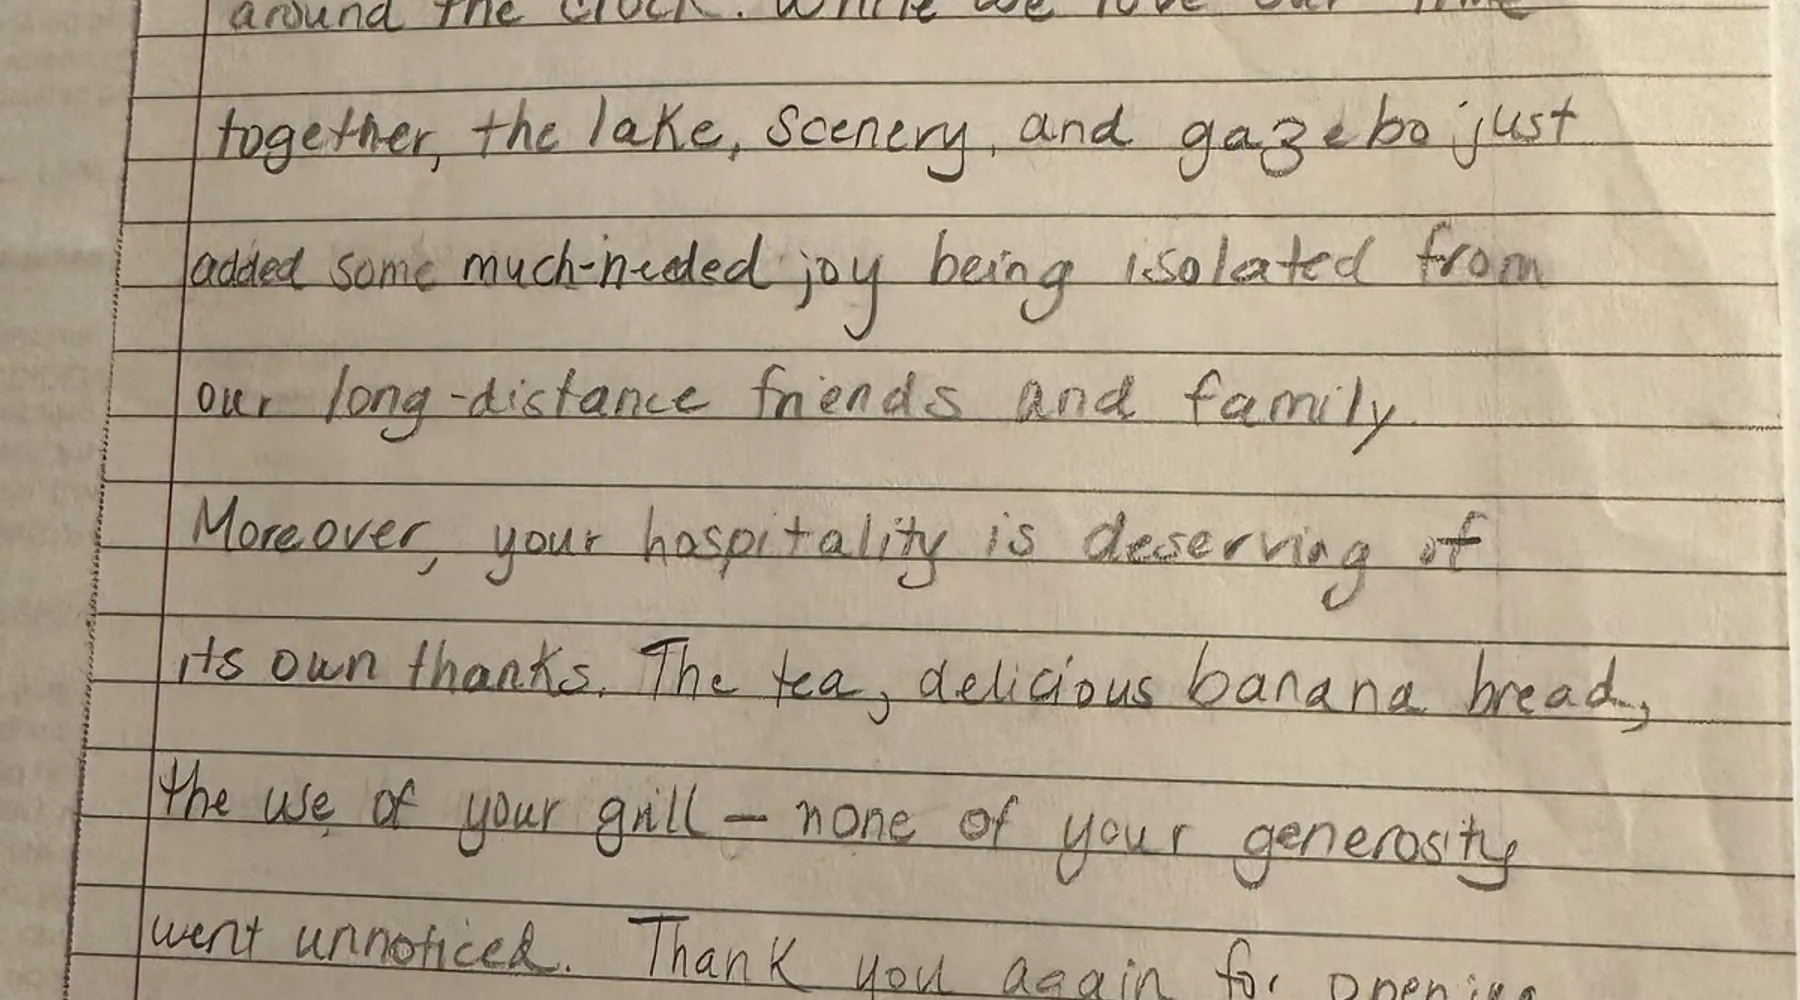 around the clock. While we love our time
together, the lake, scenery, and gazebo just
added some much-needed joy being isolated from
our long-distance friends and family.
Moreover, your hospitality is deserving of
its own thanks. The tea, delicious banana bread,
the use of your grill – none of your generosity
went unnoticed. Thank you again for opening